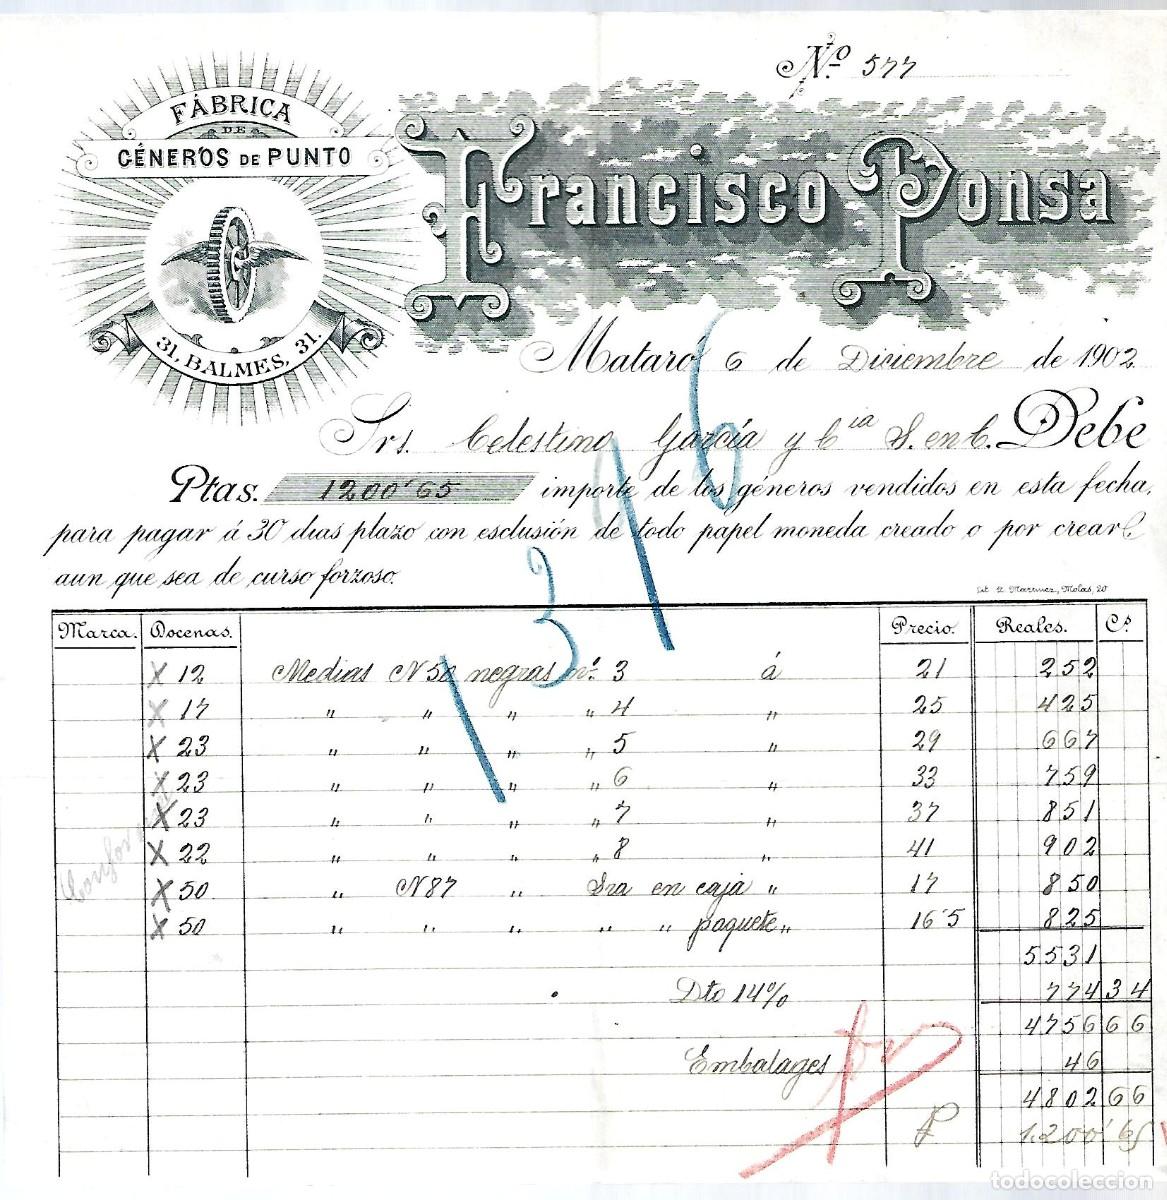 Nº 577
FÁBRICA
DE
GÉNEROS DE PUNTO
31. BALMES, 31.
Francisco Ponsa
Mataró 6 de Diciembre de 1902
Srs. Celestino García y Cia S. en C. Debe
Ptas. 1200'65 importe de los géneros vendidos en esta fecha,
para pagar á 30 dias plazo con esclusión de todo papel moneda creado o por crear
aun que sea de curso forzoso.
Lit. Martinez, Molas, 20
1376
Marca. Docenas. Precio. Reales. Cs.
X 12 Medias N 50 negras nº 3 á 21 252
X 17 " " " " 4 " 25 425
X 23 " " " " 5 " 29 667
X 23 " " " " 6 " 33 759
X 23 " " " " 7 " 37 851
X 22 " " " " 8 " 41 902
X 50 " N 87 " Sra en caja " 17 850
X 50 " " " " " paquete " 16'5 825
5531
Dto 14% 774 34
4756 66
Embalages 46
4802 66
P 1.200'65
todocoleccion